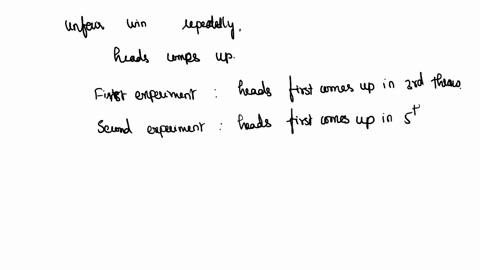 unfair coin repeatedly.
heads comes up.
First experiment : heads first comes up in 3rd throw.
Second experiment : heads first comes up in 5t